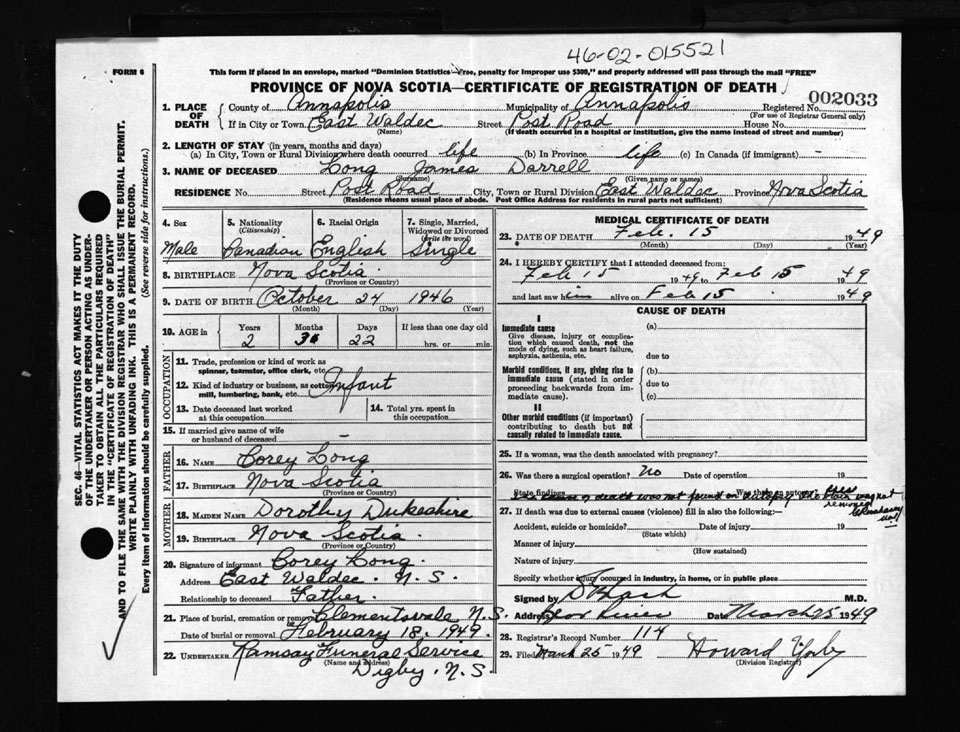 46-02-015521
FORM 6
This form if placed in an envelope, marked "Dominion Statistics—Free, penalty for improper use $300," and properly addressed will pass through the mail "FREE"
PROVINCE OF NOVA SCOTIA—CERTIFICATE OF REGISTRATION OF DEATH
002033
1. PLACE OF DEATH County of Annapolis Municipality of Annapolis Registered No.
(For use of Registrar General only)
If in City or Town East Waldec Street Post Road House No.
(Name) (If death occurred in a hospital or institution, give the name instead of street and number)
2. LENGTH OF STAY (in years, months and days)
(a) In City, Town or Rural Division where death occurred life (b) In Province life (c) In Canada (if immigrant) -
3. NAME OF DECEASED Long James Darrell
(Surname) (Given name or names)
RESIDENCE No. Street Post Road City, Town or Rural Division East Waldec Province Nova Scotia
(Residence means usual place of abode. Post Office Address for residents in rural parts not sufficient)
4. Sex 5. Nationality (Citizenship) 6. Racial Origin 7. Single, Married, Widowed or Divorced (write the word)
Male Canadian English Single
8. BIRTHPLACE Nova Scotia
(Province or Country)
9. DATE OF BIRTH October 24 1946
(Month) (Day) (Year)
10. AGE in Years Months Days If less than one day old
2 3 22 hrs. or min.
OCCUPATION
11. Trade, profession or kind of work as spinner, teamster, office clerk, etc.
12. Kind of industry or business, as cotton mill, lumbering, bank, etc. Infant
13. Date deceased last worked at this occupation
14. Total yrs. spent in this occupation
15. If married give name of wife or husband of deceased -
FATHER
16. NAME Corey Long
17. BIRTHPLACE Nova Scotia
(Province or Country)
MOTHER
18. MAIDEN NAME Dorothy Dukeshire
19. BIRTHPLACE Nova Scotia
(Province or Country)
20. Signature of informant Corey Long
Address East Waldec. N.S.
Relationship to deceased Father
21. Place of burial, cremation or removal Clementsvale N.S.
Date of burial or removal February 18. 1949.
22. UNDERTAKER Ramsay Funeral Service
(Name and address)
Digby. N.S.
MEDICAL CERTIFICATE OF DEATH
23. DATE OF DEATH Feb. 15 1949
(Month) (Day) (Year)
24. I HEREBY CERTIFY that I attended deceased from:
Feb 15 1949 to Feb 15 1949
and last saw him alive on Feb 15 1949
CAUSE OF DEATH
I
Immediate cause (a)
Give disease, injury or complication which caused death, not the mode of dying, such as heart failure, asphyxia, asthenia, etc. due to
Morbid conditions, if any, giving rise to immediate cause (stated in order proceeding backwards from immediate cause). (b) due to (c)
II
Other morbid conditions (if important) contributing to death but not causally related to immediate cause.
25. If a woman, was the death associated with pregnancy?
26. Was there a surgical operation? No Date of operation 19
State findings Was there an autopsy?
cause of death was not found on autopsy
27. If death was due to external causes (violence) fill in also the following:—
Accident, suicide or homicide? Date of injury 19
(State which)
Manner of injury
(How sustained)
Nature of injury
Specify whether injury occurred in industry, in home, or in public place
Signed by M.D.
Address Date March 25 1949
28. Registrar's Record Number 114
29. Filed March 25 1949 Howard
(Division Registrar)
SEC. 46—VITAL STATISTICS ACT MAKES IT THE DUTY
OF THE UNDERTAKER OR PERSON ACTING AS UNDER-
TAKER TO OBTAIN ALL THE PARTICULARS REQUIRED
IN THE "CERTIFICATE OF REGISTRATION OF DEATH"
AND TO FILE THE SAME WITH THE DIVISION REGISTRAR WHO SHALL ISSUE THE BURIAL PERMIT.
WRITE PLAINLY WITH UNFADING INK. THIS IS A PERMANENT RECORD.
Every item of information should be carefully supplied. (See reverse side for instructions.)